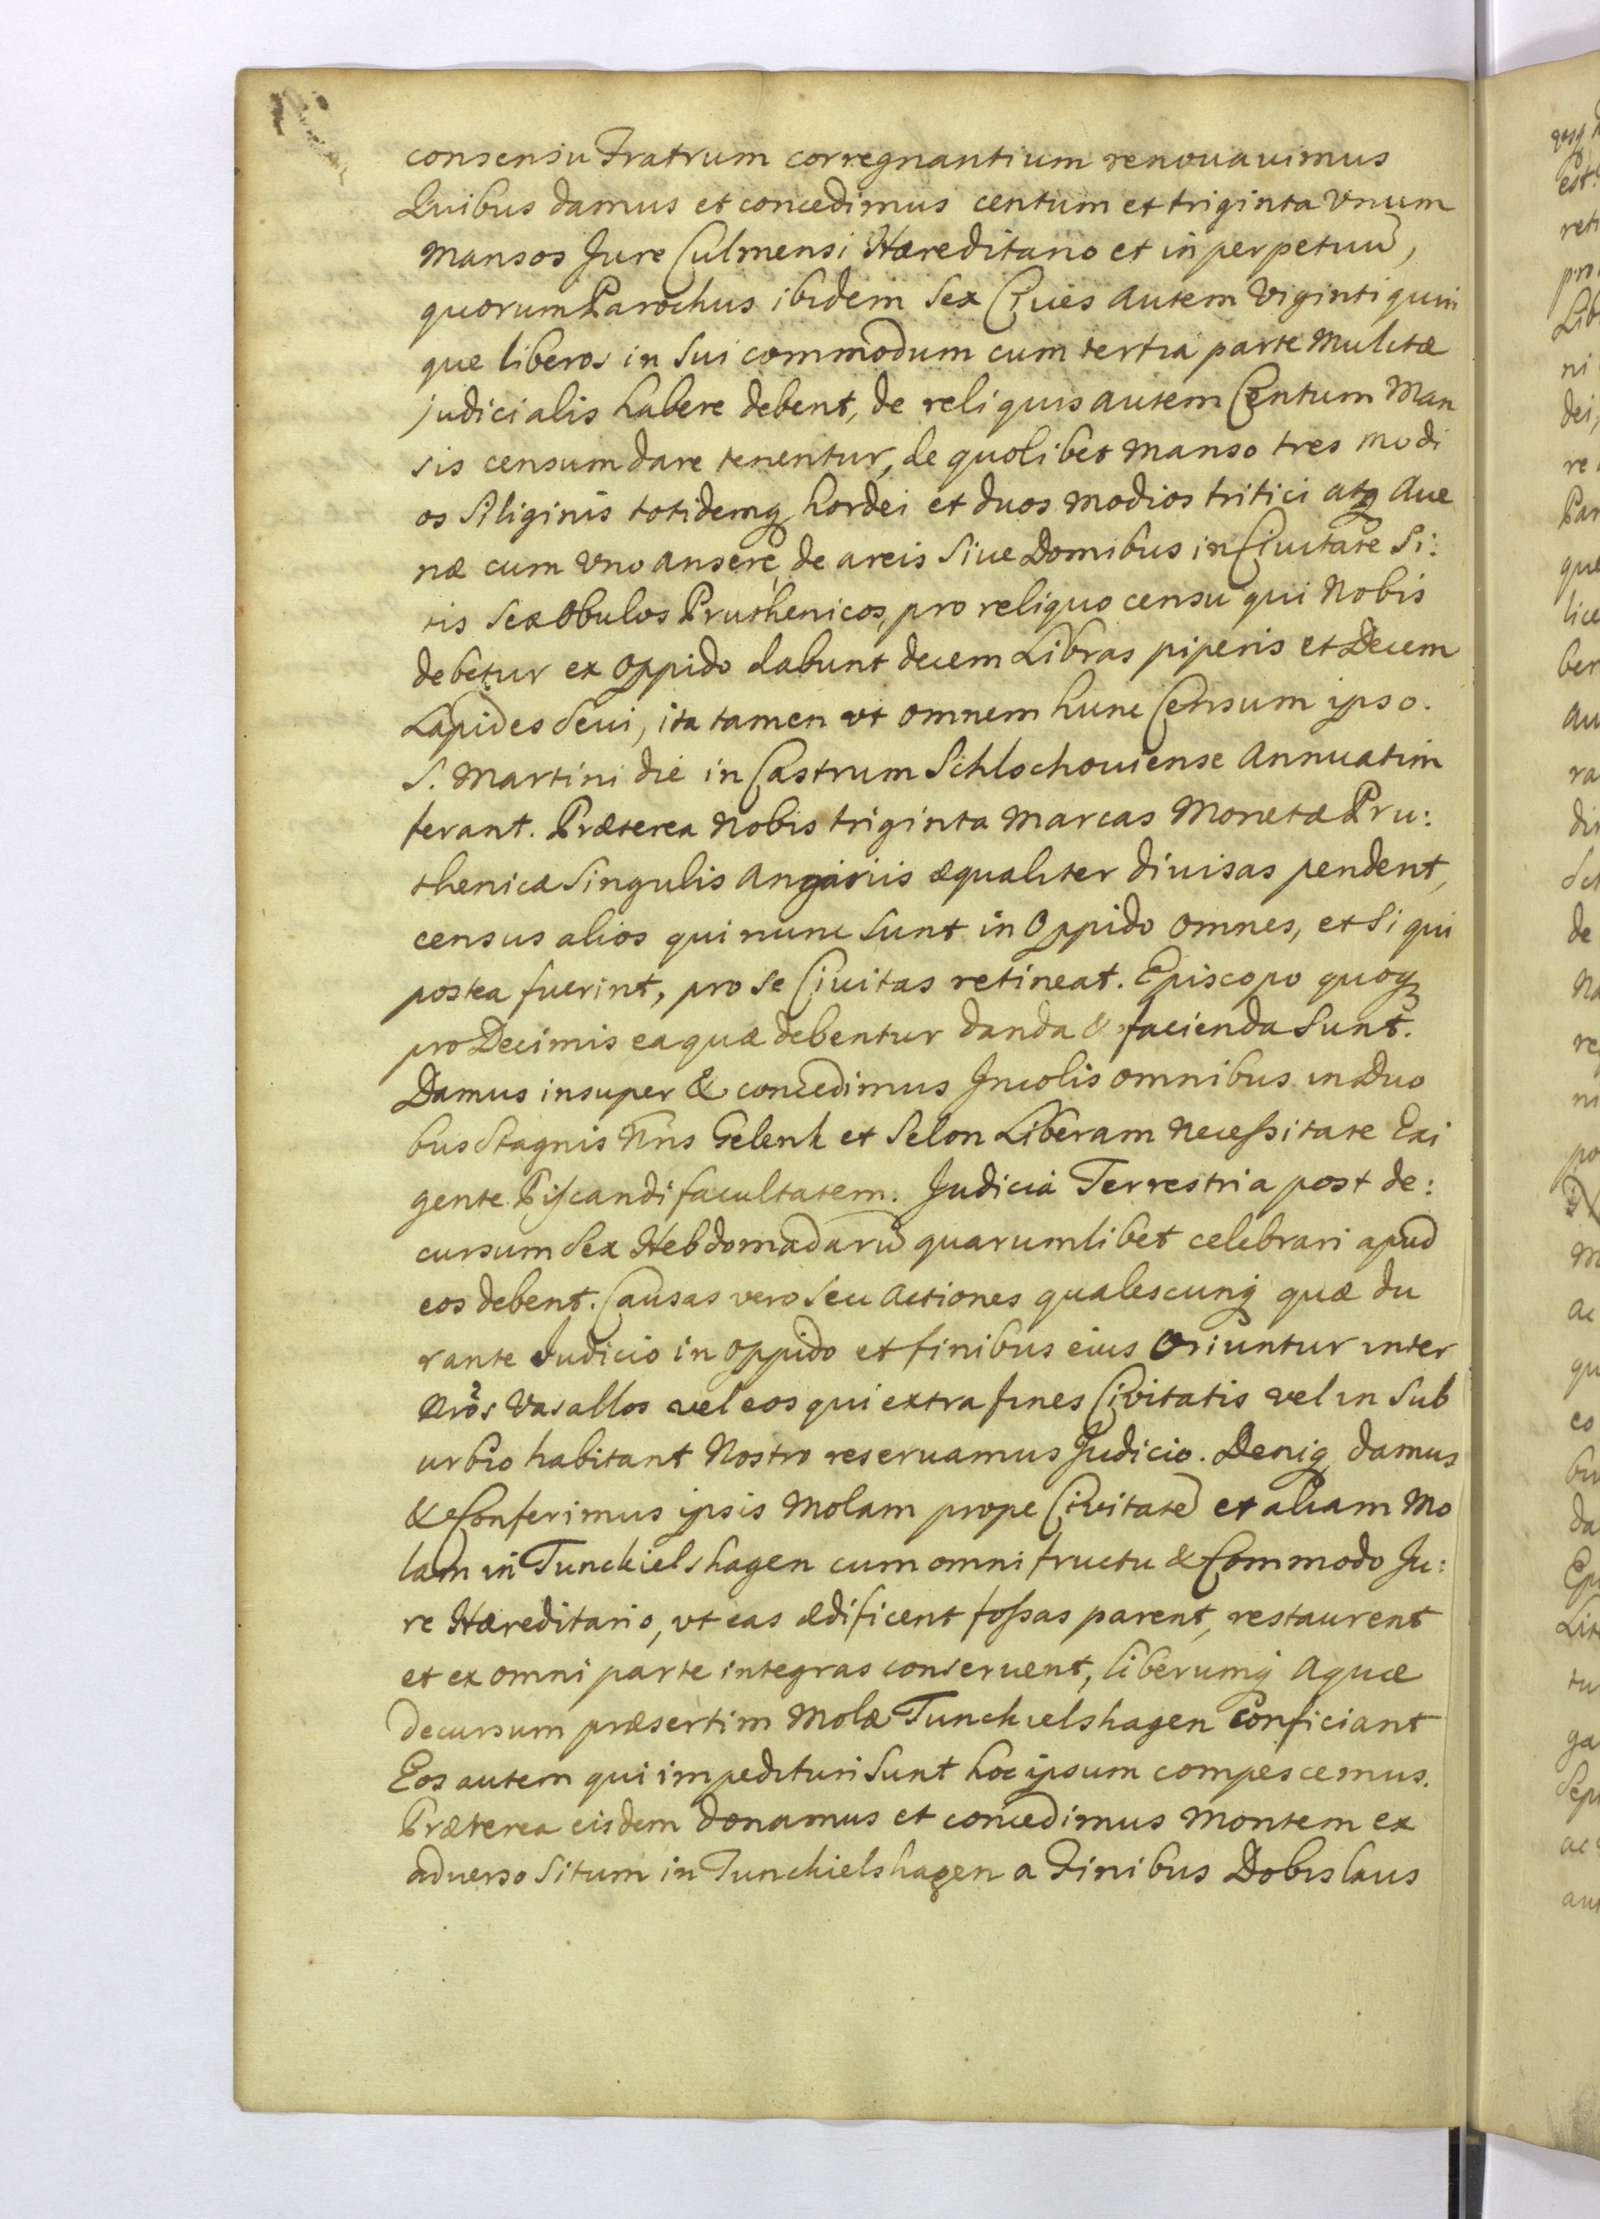 consensu Fratrum corregnantium renouauimus
Quibus damus et concedimus centum et triginta Vnum
Mansos Jure Culmensi Hæreditario et in perpetuũ,
quorum Parochus ibidem Sex Ciues autem Viginti quin
que liberos in Sui commodum cum tertia parte Mulctæ
Judicialis habere debent, de reliquis autem Centum Man
sis censum dare tenentur, de quolibet Manso tres modi
os Siliginis totidemq hordei et duos Modios tritici atq Aue
næ cum Vno ansere, de areis Siue Domibus in Ciuitate Si:
tis Sex Obulos Pruthenicos, pro reliquo censu qui Nobis
debetur ex Oppido dabunt decem Libras piperis et Decem
Lapides Seui, ita tamen vt omnem hunc Censum ipso.
S. Martini die in Castrum Schlochouiense Annuatim
ferant. Præterea Nobis triginta Marcas Monetæ Pru:
thenicæ Singulis Angariis æqualiter diuisas pendent,
census alios qui nunc Sunt in Oppido omnes, et Si qui
postea fuerint, pro Se Ciuitas retineat. Episcopo quoq
pro Decimis ea quæ debentur danda & facienda Sunt.
Damus insuper & concedimus Incolis omnibus in Duo
bus Stagnis Nr̃is Gelenk et Selon Liberam Necessitate Exi
gente Piscandi facultatem. Judicia Terrestria post de:
cursum Sex Hebdomadarũ quarumlibet celebrari apud
eos debent. Causas vero Seu Actiones qualescunq quæ du
rante Judicio in Oppido et finibus eius Oriuntur inter
Nr̃os Vasallos vel eos qui extra fines Civitatis vel in Sub
urbio habitant Nostro reseruamus Judicio. Deniq damus
& Conferimus ipsis Molam prope Civitatẽ et aliam Mo
lam in Tunckielshagen cum omni fructu & Commodo Ju:
re Hæreditario, vt eas ædificent fossas parent, restaurent
et ex omni parte integras conseruent, liberumq Aquæ
decursum præsertim Molæ Tunckielshagen Conficiant
Eos autem qui impedituri Sunt hoc ipsum compescemus.
Præterea eisdem donamus et concedimus Montem ex
aduerso Situm in Tunckielshagen a Finibus Dobislaus